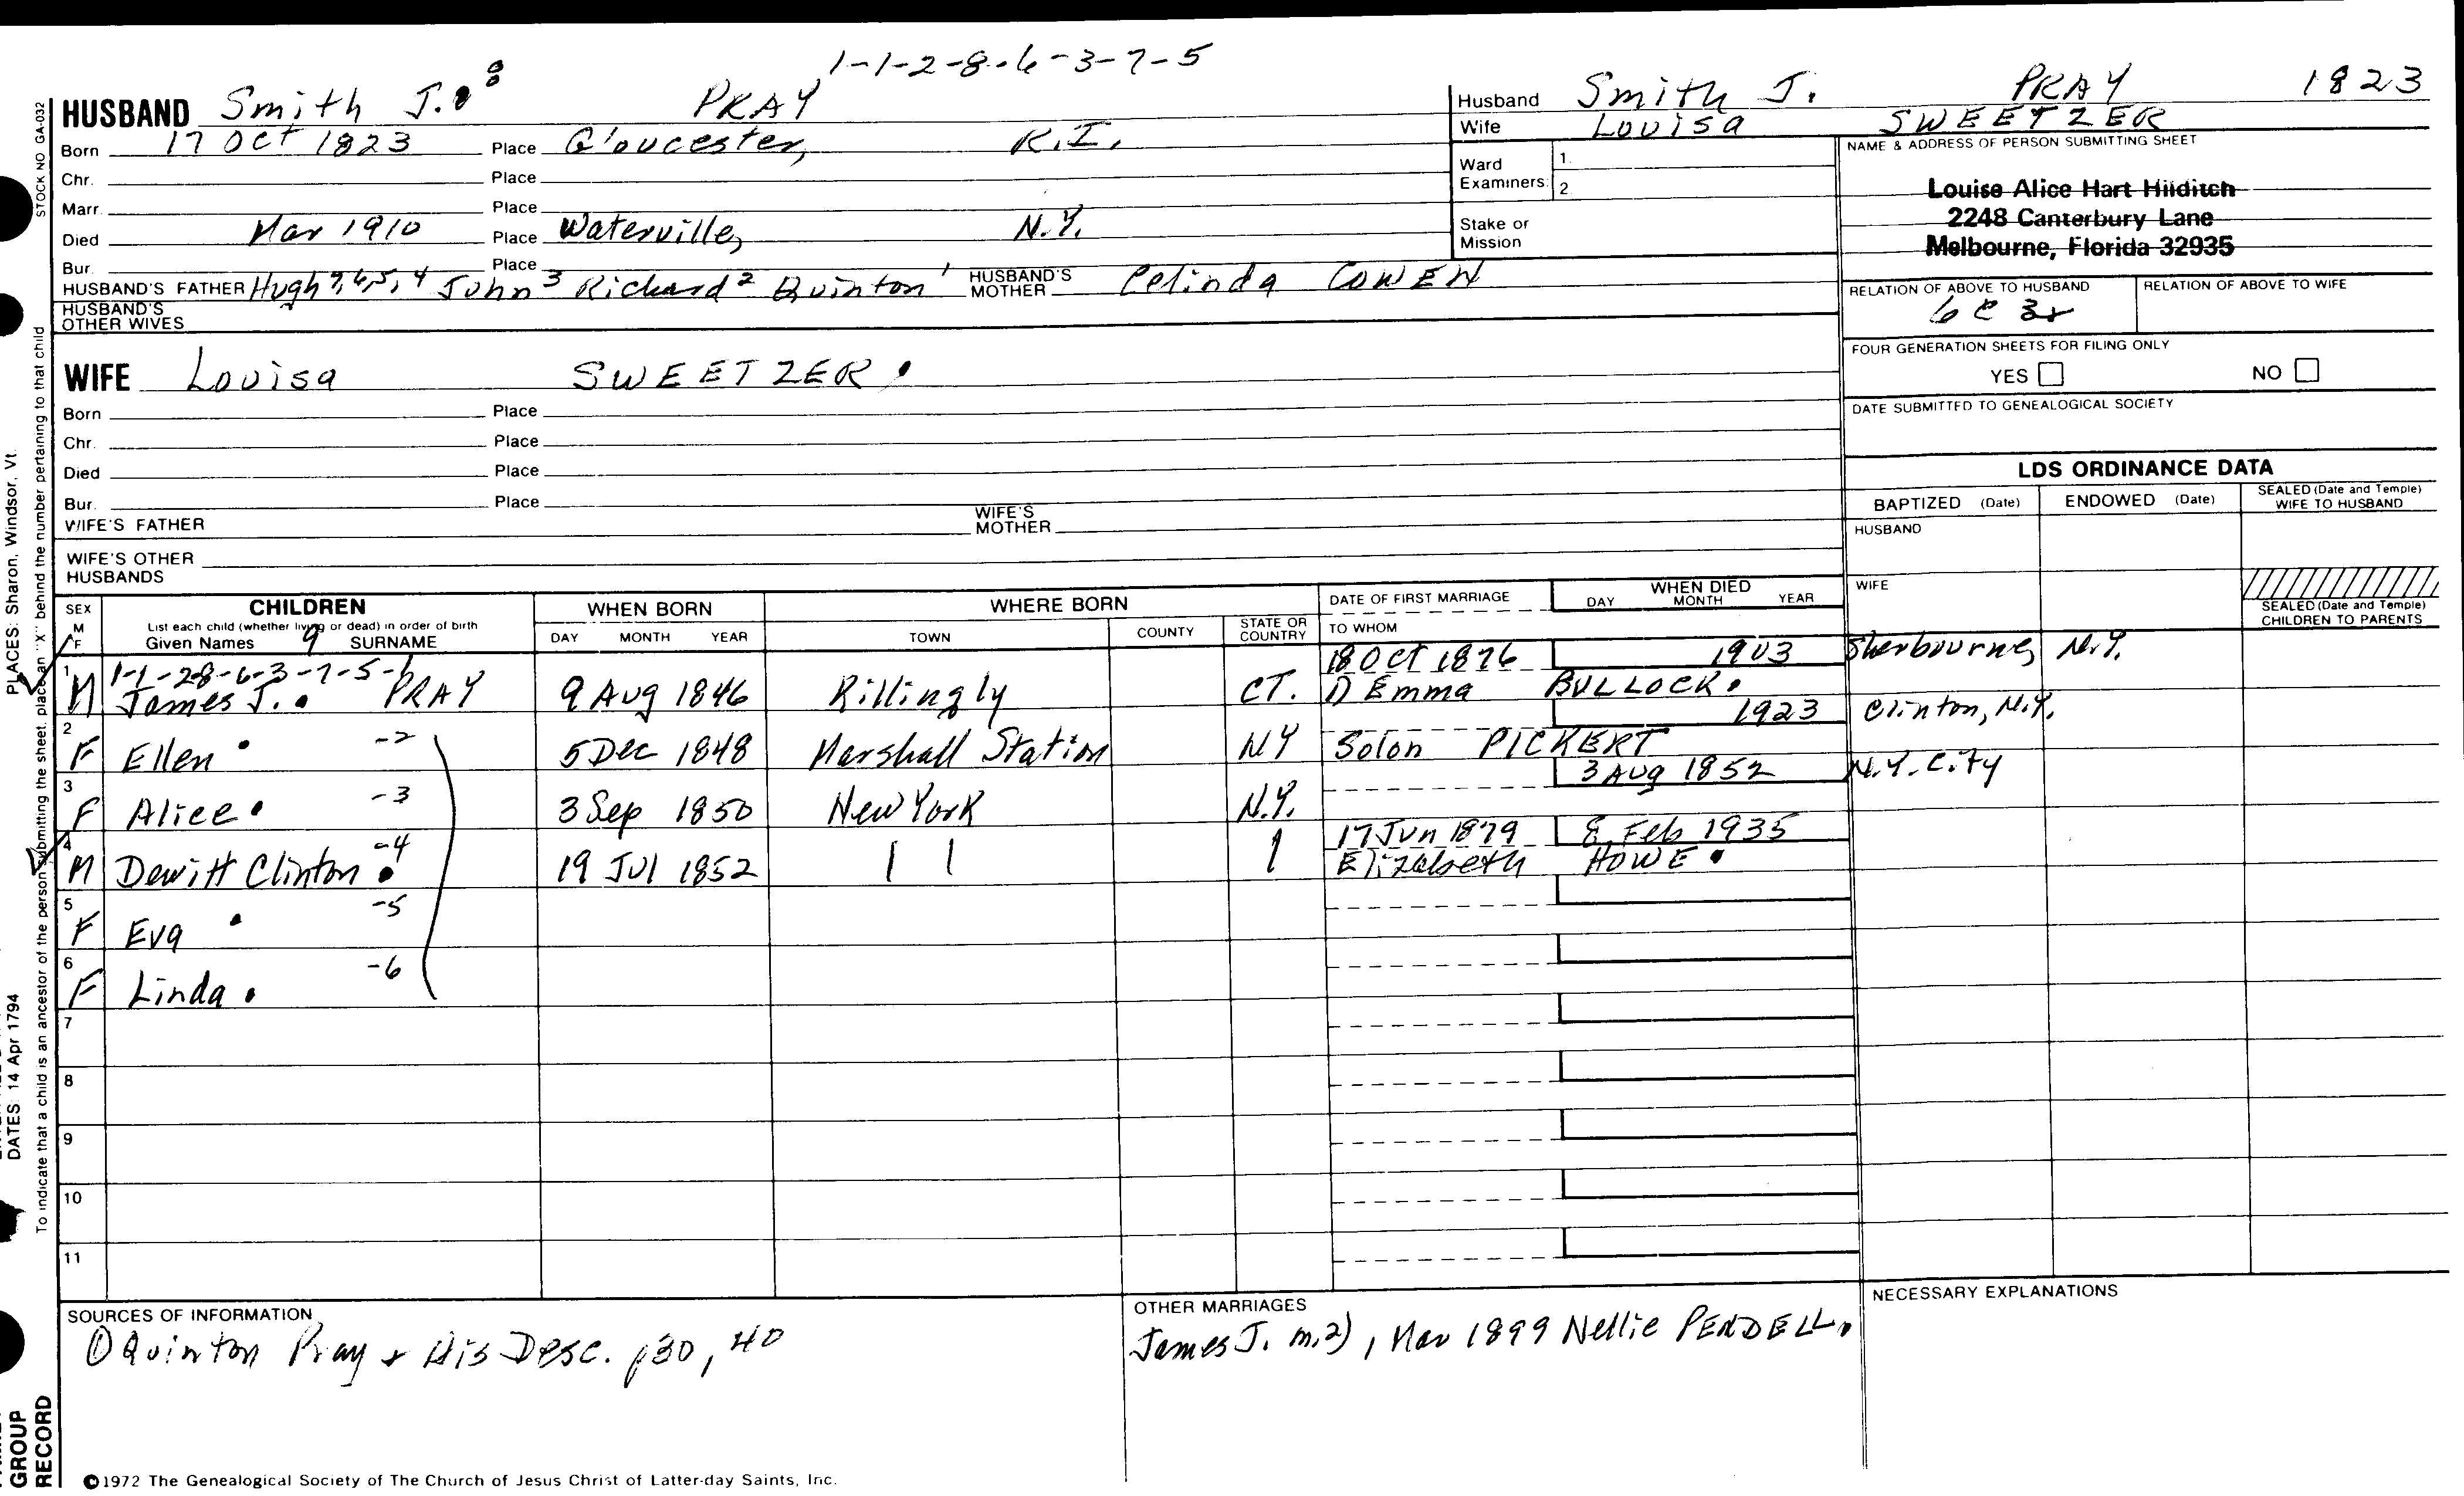 1-1-2-8-6-3-7-5
HUSBAND Smith J. PRAY
Born 17 Oct 1823 Place Gloucester, R.I.
Chr. Place
Marr. Place
Died Mar 1910 Place Waterville, N.Y.
Bur. Place
HUSBAND'S FATHER Hugh 7,6,5,4 John 3 Richard 2 Quinton 1 HUSBAND'S MOTHER Celinda COWEN
HUSBAND'S OTHER WIVES
WIFE Louisa SWEETZER
Born Place
Chr. Place
Died Place
Bur. Place
WIFE'S FATHER WIFE'S MOTHER
WIFE'S OTHER HUSBANDS
Husband Smith J. PRAY 1823
Wife Louisa SWEETZER
Ward Examiners: 1. 2.
Stake or Mission
NAME & ADDRESS OF PERSON SUBMITTING SHEET
Louise Alice Hart Hilditch
2248 Canterbury Lane
Melbourne, Florida 32935
RELATION OF ABOVE TO HUSBAND RELATION OF ABOVE TO WIFE
6 c 3r
FOUR GENERATION SHEETS FOR FILING ONLY
YES NO
DATE SUBMITTED TO GENEALOGICAL SOCIETY
LDS ORDINANCE DATA
BAPTIZED (Date) ENDOWED (Date) SEALED (Date and Temple) WIFE TO HUSBAND
HUSBAND
WIFE
SEALED (Date and Temple) CHILDREN TO PARENTS
SEX M F CHILDREN WHEN BORN WHERE BORN DATE OF FIRST MARRIAGE WHEN DIED
List each child (whether living or dead) in order of birth
Given Names 9 SURNAME DAY MONTH YEAR TOWN COUNTY STATE OR COUNTRY TO WHOM DAY MONTH YEAR
1 1-1-2-8-6-3-7-5-1 18 Oct 1876 1903 Sherbourne, N.Y.
M James J. PRAY 9 Aug 1846 Killingly CT. 1) Emma BULLOCK
2 1923 Clinton, N.Y.
F Ellen -2 5 Dec 1848 Marshall Station NY Solon PICKERT
3 3 Aug 1852 N.Y. City
F Alice -3 3 Sep 1850 New York N.Y.
4 17 Jun 1879 8 Feb 1935
M Dewitt Clinton -4 19 Jul 1852 | | | Elizabeth HOWE
5
F Eva -5
6
F Linda -6
7
8
9
10
11
SOURCES OF INFORMATION
① Quinton Pray + His Desc. p30, 40
OTHER MARRIAGES
James J. m. 2), Mar 1899 Nellie PENDELL
NECESSARY EXPLANATIONS
©1972 The Genealogical Society of The Church of Jesus Christ of Latter-day Saints, Inc.
STOCK NO GA-032
To indicate that a child is an ancestor of the person submitting the sheet, place an "X" behind the number pertaining to that child
PLACES: Sharon, Windsor, Vt.
DATES: 14 Apr 1794
GROUP
RECORD